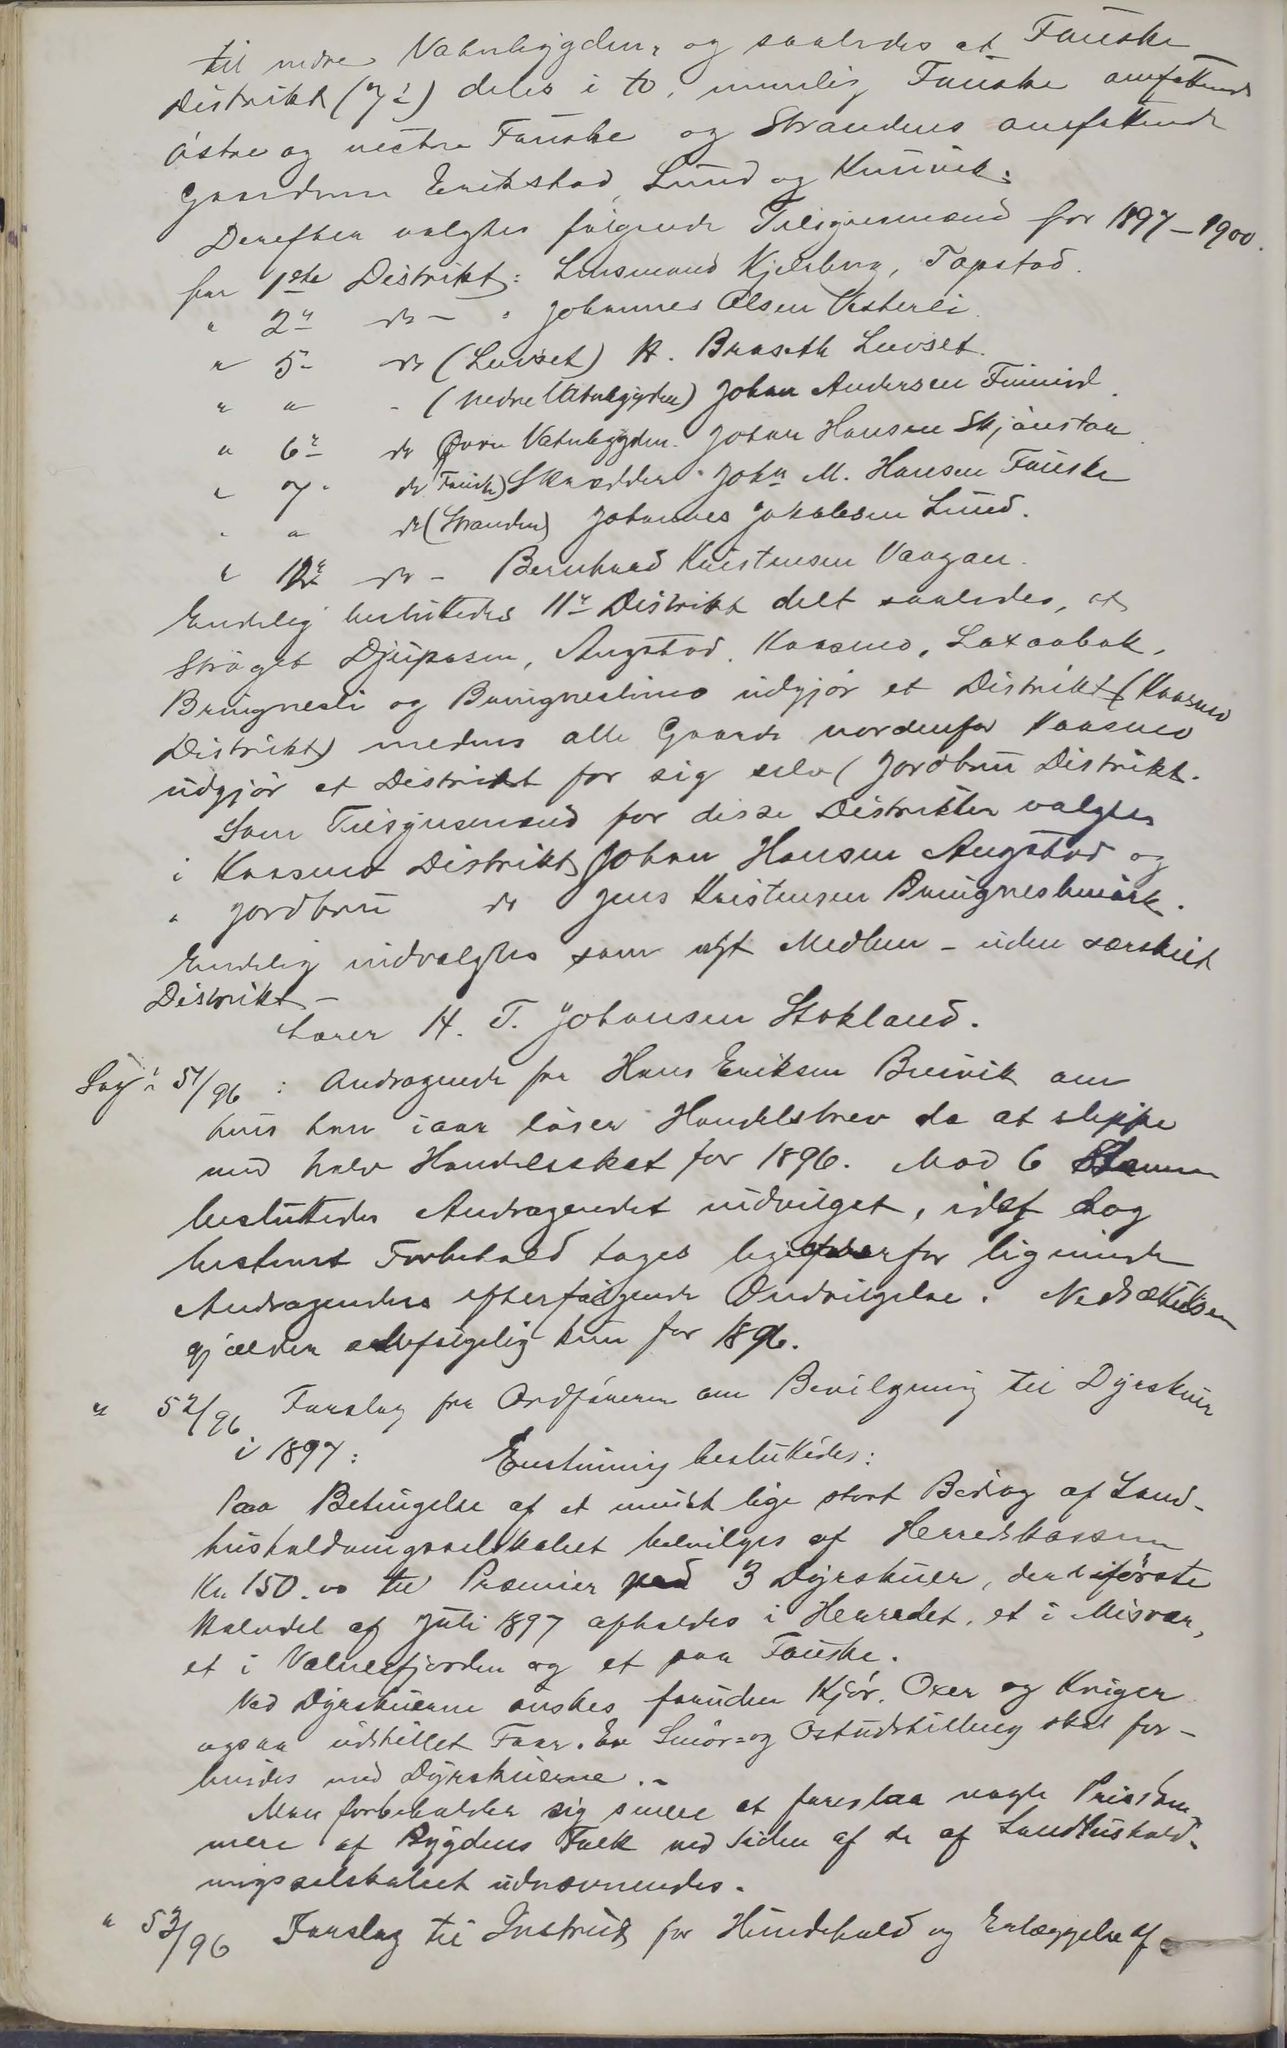 til nedre Vatnbygden, og saaledes at Fauske
Distrikt (7de) deles i to, nemlig Fauske omfattende
östre og vestre Fauske og Strandens omfattende
Gaardene Erikstad, Lund og Kvinvik.
Derefter valgtes følgende Tilsynsmænd for 1897–1900.
for 1ste Distrikt: Lensmand Kjelsberg, Tapstad.
" 2" do – " Johannes Olsen Vesterli.
" 5" do (Leivset) H. Braseth Leivset.
" " " (nedre Vatnbygden) Johan Andersen Finneid.
" 6" do Øvre Vatnbygden. Johan Hansen Skjönstaa.
" 7" do (Fauske) Skrædder John M. Hansen Fauske
" " do (Stranden) Johannes Jakobsen Lund.
" 12" do – Bernhard Kristensen Vaagan.
Endelig besluttedes 11" Distrikt delt saaledes, at
Ströget Djupaasen, Angstad, Kaasmo, Laxaabak,
Bringnesli og Bringneslimo udgjör et Distrikt (Kaasmo
Distrikt) medens alle Gaarde nordenfor Kaasmo
udgjör et Distrikt for sig selv (Jordbru Distrikt.
Som Tilsynsmænd for disse Distrikter valgtes
i Kaasmo Distrikt Johan Hansen Angstad og
" Jordbru do Jens Kristensen Bringneslimark.
Endelig indvalgtes som nyt Medlem – uden særskilt
Distrikt –
Lærer H. T. Johansen Stokland.
Sag " 51/96 : Andragende fra Hans Eriksen Breivik om
hvis han iaar löser Handelsbrev da at slippe
med halv Handelsskat for 1896. Mod 6 Stemmer
besluttedes Andragendet indvilget, idet dog
bestemt Forbehold tages ligeoverfor lignende
Andragenders efterfølgende Indvilgelse. Nedsættelsen
gjælder selvfølgelig kun for 1896.
" 52/96 Forslag fra Ordföreren om Bevilgning til Dyrskuer
i 1897: Enstemmig besluttedes:
Paa Betingelse af et mindst lige stort Bidrag af Land-
husholdningsselskabet bevilges af Herredskassen
Kr. 150.00 til Præmier paa 3 Dyrskuer, der i förste
Halvdel af Juli 1897 afholdes i Herredet, et i Misvær,
et i Valnesfjorden og et paa Fauske.
Ved Dyrskuerne önskes foruden Kjör, Oxer og Kviger
ogsaa udstillet Faar. En Smör- og Ostudstilling skal for-
bindes med Dyrskuerne. –
Man forbeholder sig senere at foreslaa nogle Prisdom-
mere af Bygdens Folk ved Siden af de af Landhushold-
ningsselskabet udnævnendes.
" 53/96 Forslag til Instrux for Hundehold og Erlæggelse af